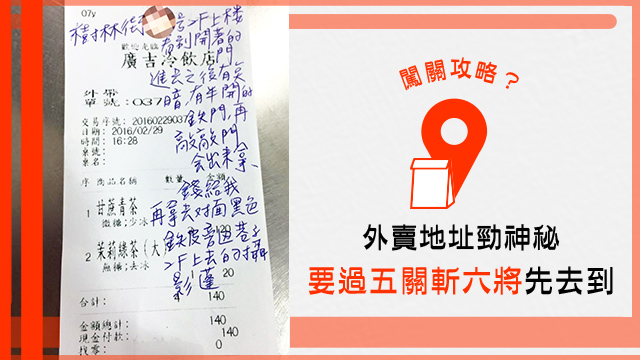 07y
樹林街 号2F上楼
看到開著的
門
歡迎光臨
廣吉冷飲店
進去之後有臭
外帶
單號:037
暗,有半開的
交易序號: 20160229037
鉄門,再
日期: 2016/02/29
時間: 16:28
敲敲門
桌號:
桌名:
会出来拿
序 商品名稱 數量 金額
錢給我
1 甘蔗青茶
微糖;少冰
再拿去对面黑色
120
鉄皮旁边巷子
2 茉莉綠茶(大
無糖;去冰
2F上去的攝
影蓬
1 20
合計: 140
金額總計: 140
現金付款: 140
找零: 0
闖關攻略?
外賣地址勁神秘
要過五關斬六將先去到